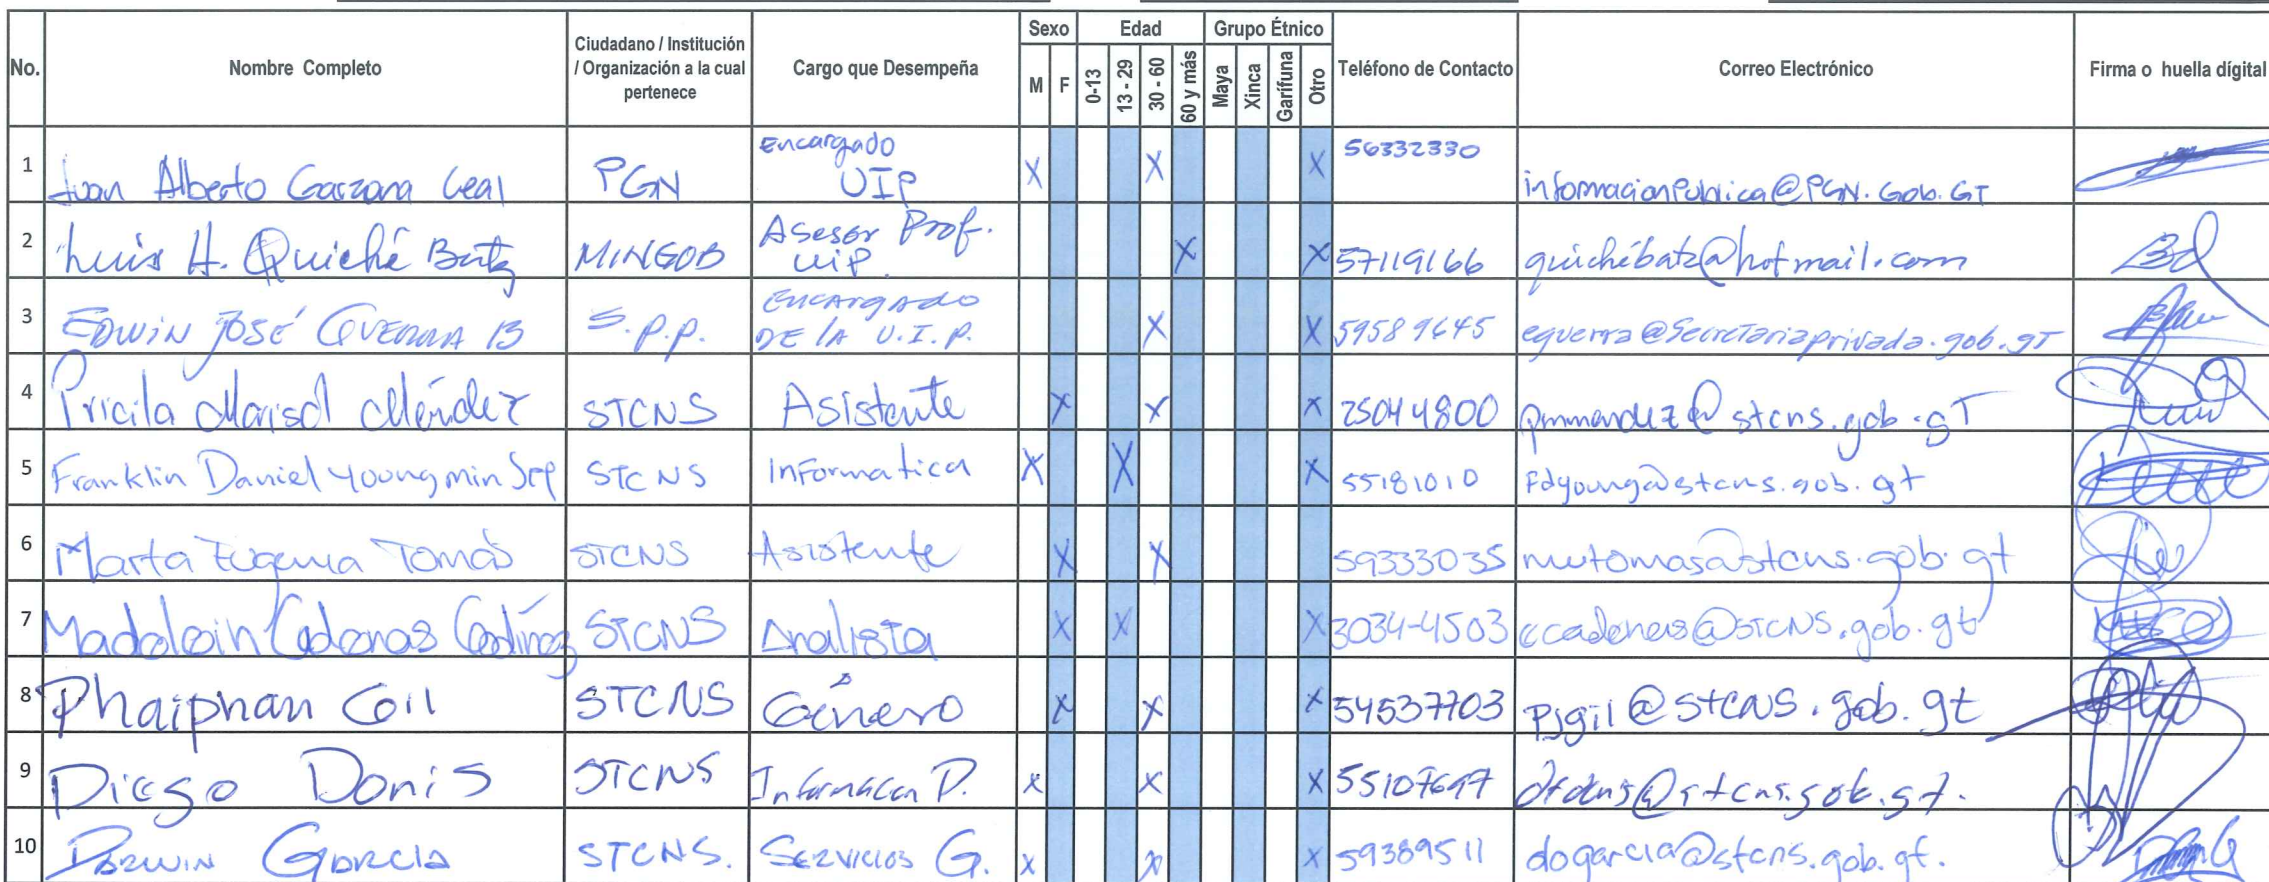 No. Nombre Completo Ciudadano / Institución / Organización a la cual pertenece Cargo que Desempeña Sexo M F Edad 0-13 13 - 29 30 - 60 60 y más Grupo Étnico Maya Xinca Garífuna Otro Teléfono de Contacto Correo Electrónico Firma o huella dígital
1 Juan Alberto Garzona Leal PGN Encargado UIP X X X 56332330 informacionPublica@PGN.Gob.GT
2 Luis H. Quiché Batz MINGOB Asesor Prof. UIP. X X 57119166 quichébatz@hotmail.com
3 EDWIN JOSÉ GUERRA B S.P.P. ENCARGADO DE LA U.I.P. X X 59589645 eguerra@Secretariaprivada.gob.gT
4 Pricila Marisol Méndez STCNS Asistente X X X 25044800 pmmendez@stcns.gob.gT
5 Franklin Daniel Youngmin STCNS Informatica X X X 55181010 Fdyoung@stcns.gob.gt
6 Marta Eugenia Tomás STCNS Asistente X X X 59333035 metomas@stcns.gob.gt
7 Cadenas STCNS Analista X X X 3034-4503 ccadenas@STCNS.gob.gt
8 Phaiphan Gil STCNS Género X X X 54537703 pjgil@STCNS.gob.gt
9 Diego Donis STCNS Información P. X X X 55107697
10 DARWIN GARCIA STCNS. SERVICIOS G. X X X 59389511 dogarcia@stcns.gob.gt.